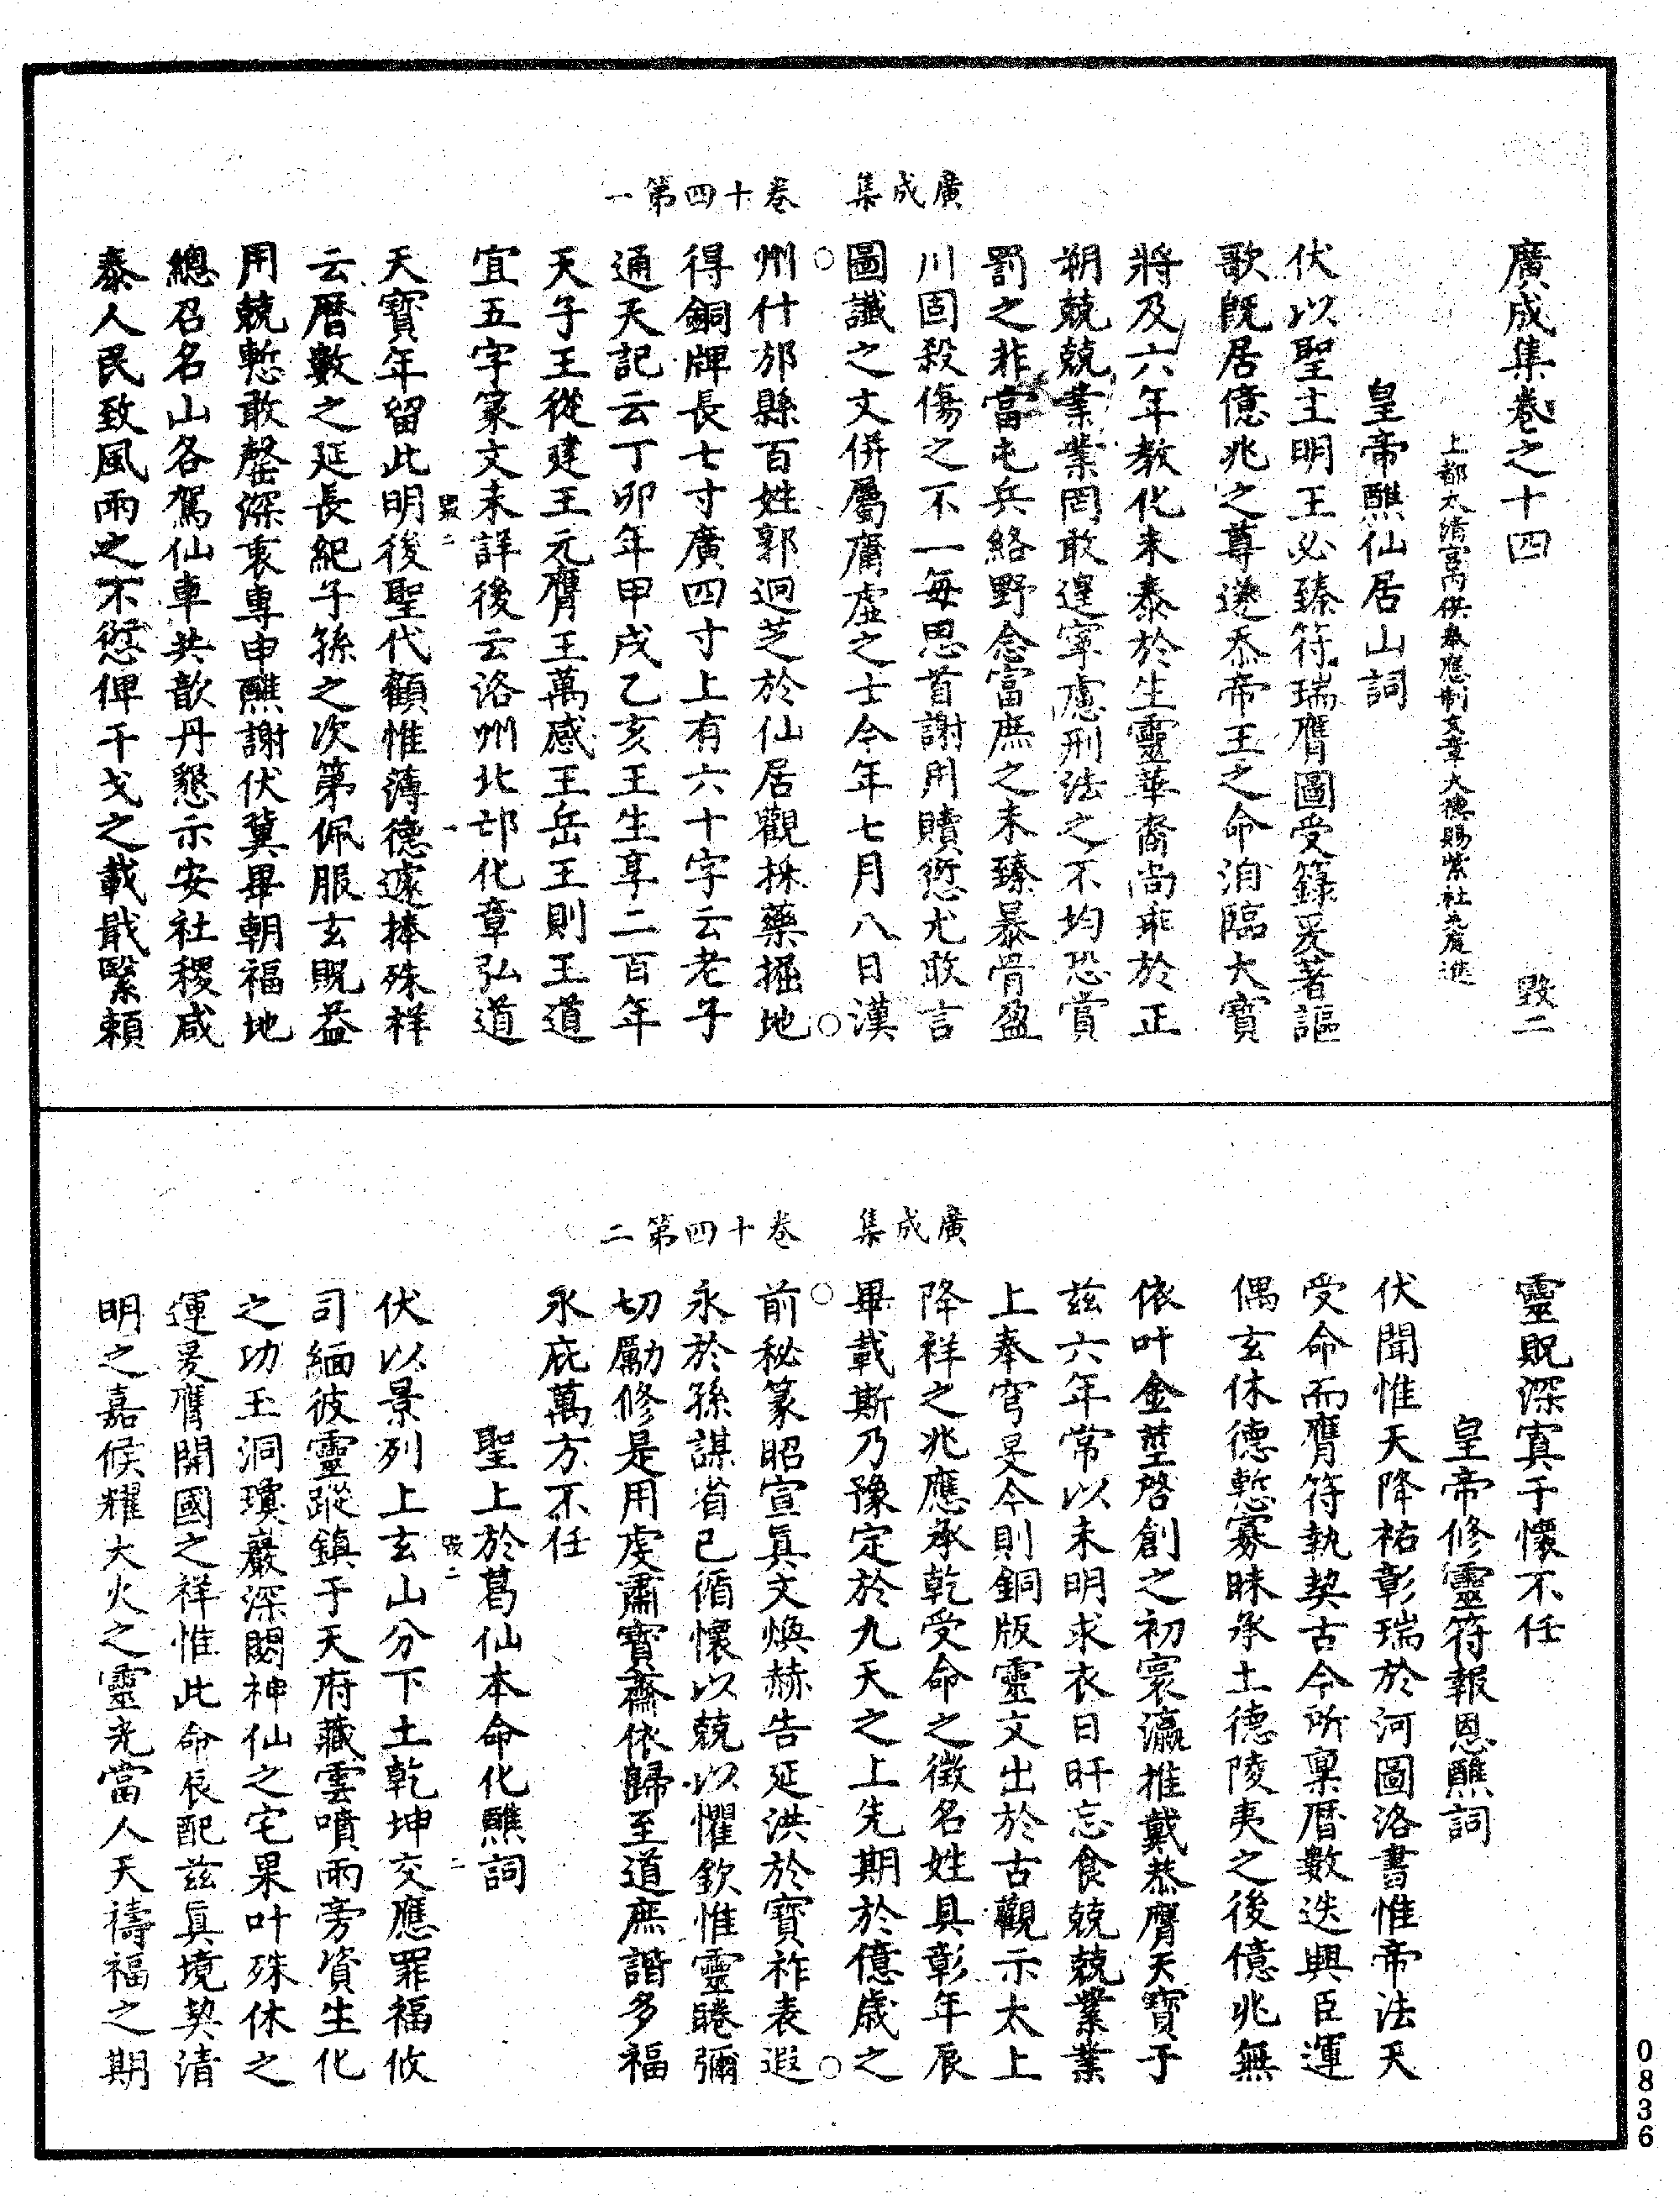 廣成集　卷十四第一
廣成集卷之十四　　　敗二
上都太清宮內供奉應制文章大德賜紫杜光庭進
皇帝醮仙居山詞
伏以聖主明王必臻符瑞膺圖受籙爰著謳
歌既居億兆之尊遂忝帝王之命洎臨大寶
將及六年教化未泰於生靈華裔尚乖於正
朔兢兢業業罔敢遑寧慮刑法之不均恐賞
罰之非當屯兵絡野念當庶之未臻暴骨盈
川固殺傷之不一每思首謝用贖愆尤敢言
圖讖之文併屬膺虛之士今年七月八日漢
州什邡縣百姓郭迴芝於仙居觀採藥掘地
得銅牌長七寸廣四寸上有六十字云老子
通天記云丁卯年甲戌乙亥王生享二百年
天子王從建王元膺王萬感王岳王則王道
宜五字篆文未詳後云洛州北邙化章弘道
天寶年留此明後聖代顧惟薄德遽捧殊祥
云曆數之延長紀子孫之次第佩服玄貺益
用兢慙敢罄深衷專申醮謝伏冀畢朝福地
總召名山各駕仙車共歆丹懇示安社稷咸
泰人民致風雨之不愆俾干戈之載戢緊賴
敗二　一
廣成集　卷十四第二
靈貺深寘于懷不任
皇帝修靈符報恩醮詞
伏聞惟天降祐彰瑞於河圖洛書惟帝法天
受命而膺符執契古今所稟曆數迭興臣運
偶玄休德慙寡昧承土德陵夷之後億兆無
依叶金堊啓創之初寰瀛推戴恭膺天寶于
茲六年常以未明求衣日旰忘食兢兢業業
上奉穹旻今則銅版靈文出於古觀示太上
降祥之兆應承乾受命之徵名姓具彰年辰
畢載斯乃豫定於九天之上先期於億歲之
前秘篆昭宣眞文煥赫告延洪於寶祚表遐
永於孫謀省己循懷以兢以懼欽惟靈睠彌
切勵修是用虔肅寶齋依歸至道庶諧多福
永庇萬方不任
聖上於葛仙本命化醮詞
伏以景列上玄山分下土乾坤交應罪福攸
司緬彼靈蹤鎮于天府藏雲噴雨旁資生化
之功玉洞瓊巖深閟神仙之宅果叶殊休之
運爰膺開國之祥惟此命辰配茲眞境契清
明之嘉候耀大火之靈光當人天禱福之期
敗二　二
0836